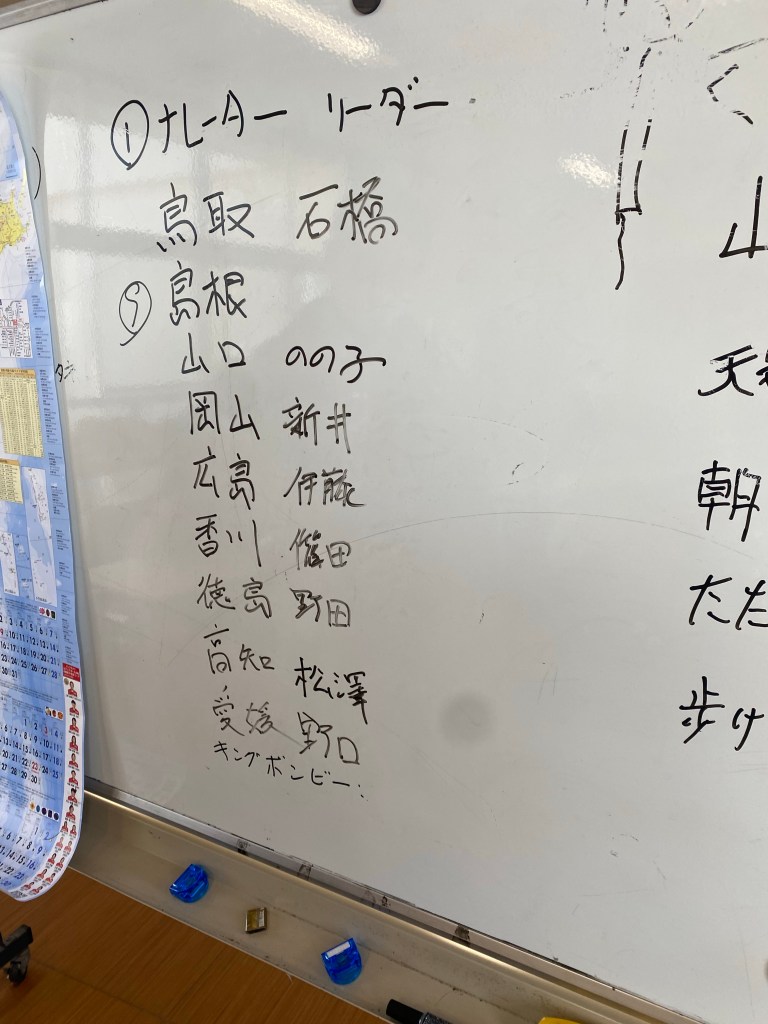 ① ナレーター リーダー
鳥取 石橋
⑨ 島根
山口 のの子
岡山 新井
広島 伊藤
香川 田
徳島 野田
高知 松澤
愛媛 野口
キングボンビー：
く
山
天
朝
ただ
歩け